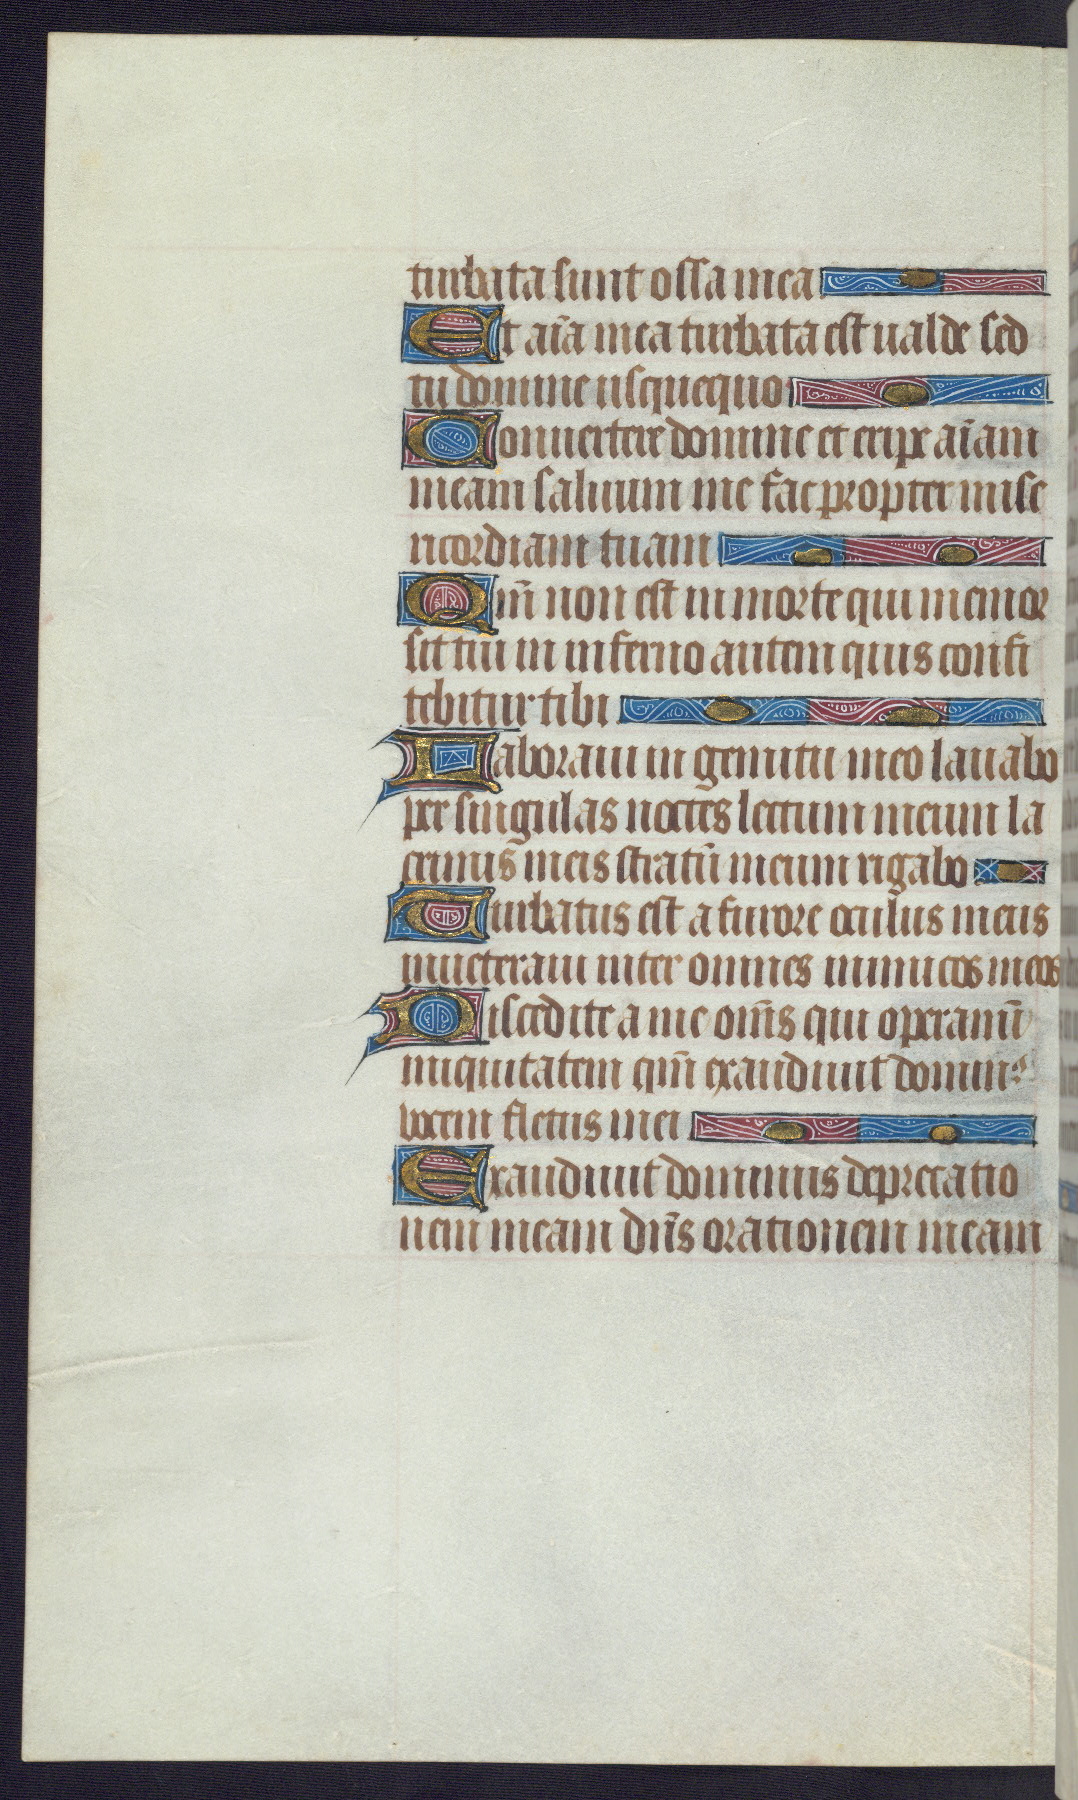 turbata sunt ossa mea
Et aīa mea turbata est ualde sed
tu domine usquequo
Conuertere domine et eripe aīam
meam saluum me fac propter mise
ricordiam tuam
Qm̄ non est in morte qui memor
sit tui in inferno autem quis confi
tebitur tibi
Laboraui in gemitu meo lauabo
per singulas noctes lectum meum la
crimis meis stratū meum rigabo
Turbatus est a furore oculus meus
inueteraui inter omnes inimicos meos
Discedite a me om̄s qui operamī
iniquitatem qm̄ exaudiuit domin⁹
vocem fletus mei
Exaudiuit dominus deprecatio
nem meam dn̄s orationem meam